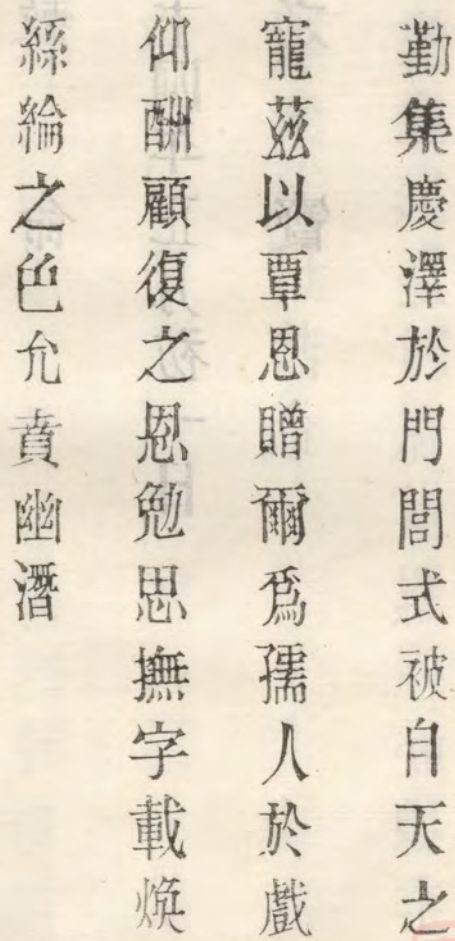 勤集慶澤於門閭式被自天之
寵茲以覃恩贈爾爲孺人於戲
仰酬顧復之恩勉思撫字載煥
絲綸之色允賁幽潛